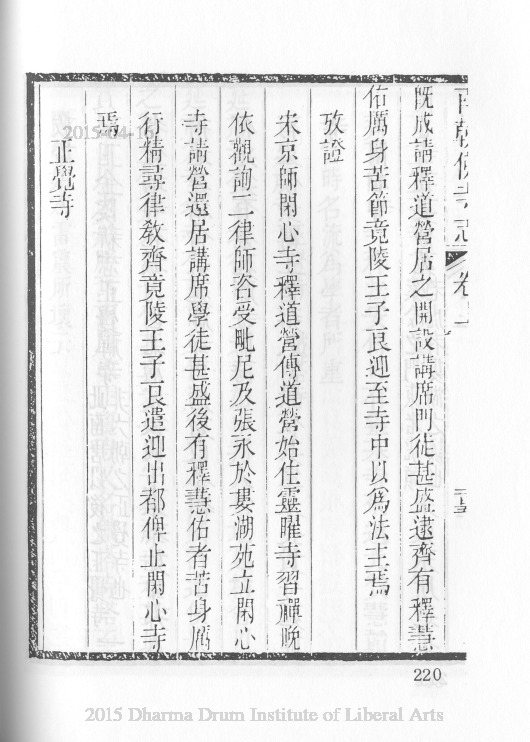 南朝佛寺志 卷上
既成請釋道營居之開設講席門徒甚盛逮齊有釋慧
佑厲身苦節竟陵王子良迎至寺中以為法主焉
攷證
宋京師閑心寺釋道營傳道營始住靈曜寺習禪晚
依觀詢二律師咨受毗尼及張永於婁湖苑立閑心
寺請營還居講席學徒甚盛後有釋慧佑者苦身厲
行精尋律教齊竟陵王子良遣迎出都俾止閑心寺
焉
正覺寺
220
2015-04-16
2015 Dharma Drum Institute of Liberal Arts